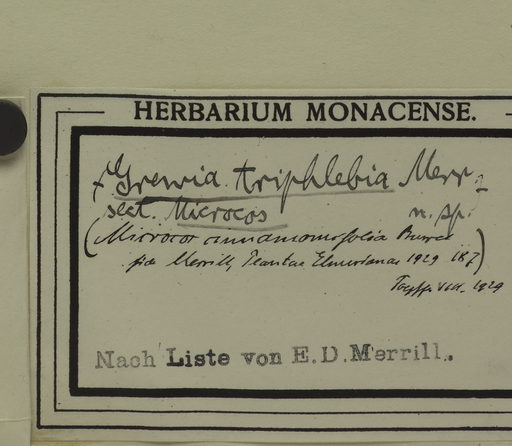 HERBARIUM MONACENSE.
Grewia triphlebia Merr.
sect. Microcos n. sp.
(Microcos cinnamomifolia Burret
fide Merrill, Plantae Elmerianae 1929 187)
vid. 1929
Nach Liste von E.D.Merrill.